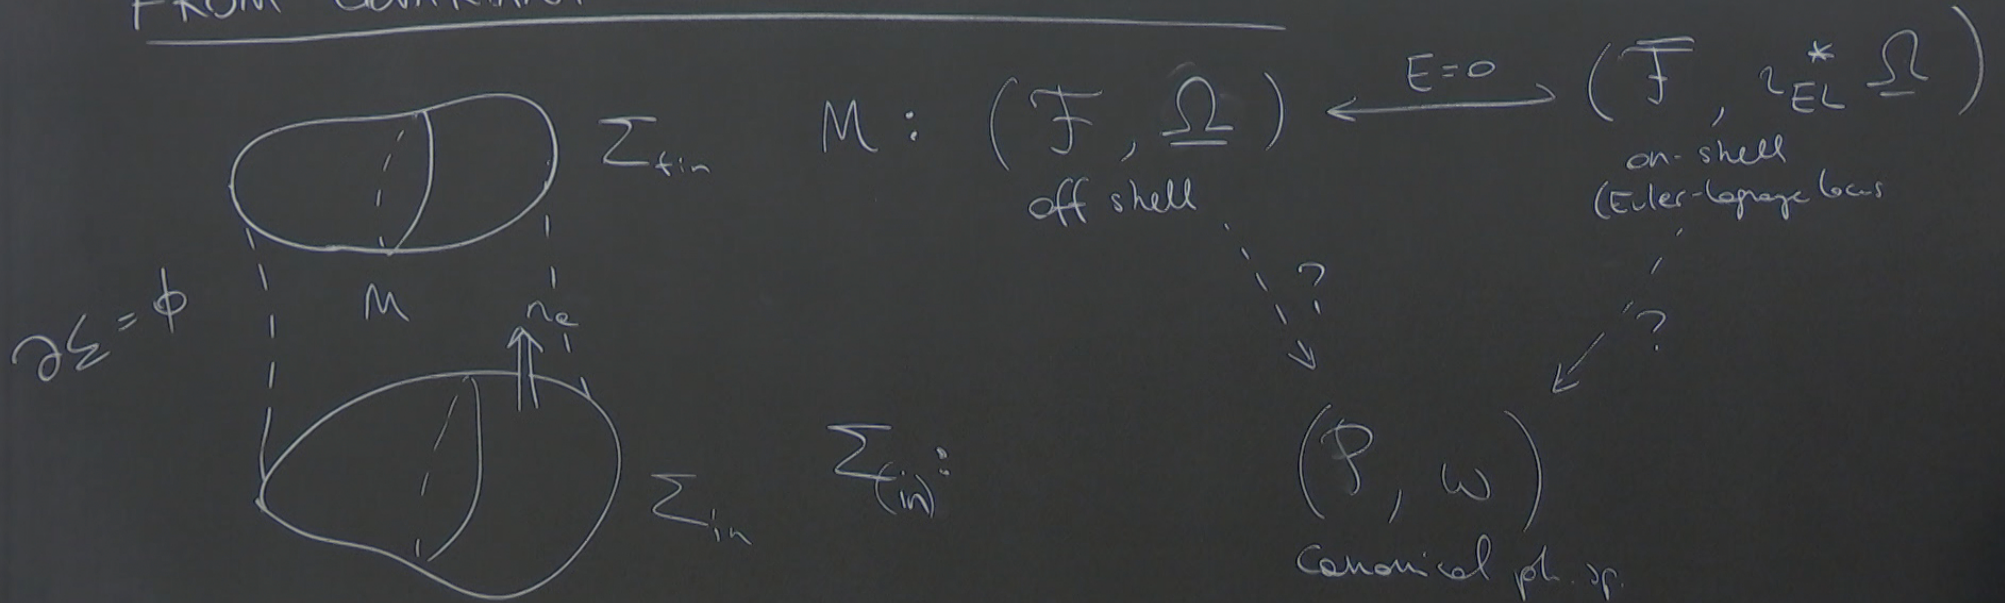 FROM
Σfin
M : (F, Ω) ⟷ E=0 (F̄, ι*EL Ω)
off shell
on-shell
(Euler-Lagrange locus
∂Σ = ϕ
M
na
?
?
Σin
Σ(in):
(P, ω)
Canonical ph. sp.